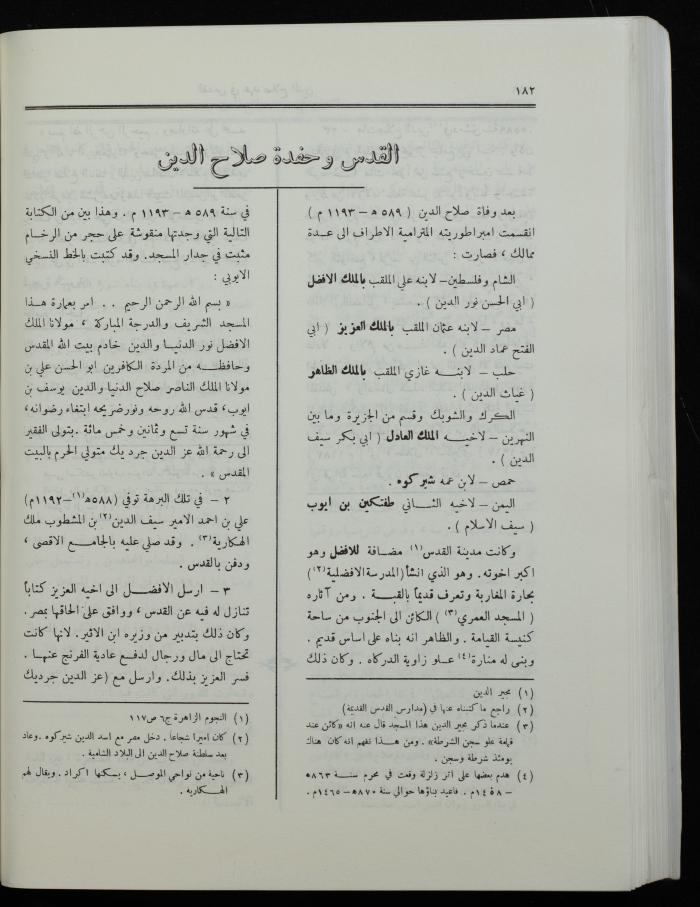 ١٨٢
القدس وحفدة صلاح الدين
بعد وفاة صلاح الدين ( ٥٨٩ ه – ١١٩٣ م )
انقسمت امبراطوريته المترامية الاطراف الى عدة
ممالك ، فصارت :
الشام وفلسطين – لابنه علي الملقب بالملك الافضل
( ابي الحسن نور الدين ) .
مصر – لابنه عثمان الملقب بالملك العزيز ( ابي
الفتح عماد الدين ) .
حلب – لابنه غازي الملقب بالملك الظاهر
( غياث الدين ) .
الكرك والشوبك وقسم من الجزيرة وما بين
النهرين – لاخيه الملك العادل ( ابي بكر سيف
الدين ) .
حمص – لابن عمه شيركوه .
اليمن – لاخيه الثاني طفتكين بن ايوب
( سيف الاسلام ) .
وكانت مدينة القدس (١) مضافة للافضل وهو
اكبر اخوته . وهو الذي انشأ (المدرسة الافضلية (٢))
بحارة المغاربة وتعرف قديماً بالقبة . ومن آثاره
( المسجد العمري (٣) ) الكائن الى الجنوب من ساحة
كنيسة القيامة . والظاهر انه بناه على اساس قديم .
وبنى له منارة (٤) علو زاوية الدركاه . وكان ذلك
(١) مجير الدين
(٢) راجع ما كتبناه عنها في (مدارس القدس القديمة)
(٣) عندما ذكر مجير الدين هذا المسجد قال عنه انه «كائن عند
قمامة علو سجن الشرطة» . ومن هذا نفهم انه كان هناك
يومئذ شرطة وسجن .
(٤) هدم بعضها على اثر زلزلة وقعت في محرم سنة ٨٦٣ه
– ١٤٥٨م . فاعيد بناؤها حوالي سنة ٨٧٠ه – ١٤٦٥م .
في سنة ٥٨٩ ه – ١١٩٣ م . وهذا بين من الكتابة
التالية التي وجدتها منقوشة على حجر من الرخام
مثبت في جدار المسجد . وقد كتبت بالخط النسخي
الايوبي :
« بسم الله الرحمن الرحيم . . امر بعمارة هذا
المسجد الشريف والدرجة المباركة ، مولانا الملك
الافضل نور الدنيا والدين خادم بيت الله المقدس
وحافظه من المردة الكافرين ابو الحسن علي بن
مولانا الملك الناصر صلاح الدنيا والدين يوسف بن
ايوب ، قدس الله روحه ونور ضريحه ابتغاء رضوانه ،
في شهور سنة تسع وثمانين وخمس مائة . بتولي الفقير
الى رحمة الله عز الدين جرديك متولي الحرم بالبيت
المقدس » .
٢ – في تلك البرهة توفي (٥٨٨ه (١) – ١١٩٢م)
علي بن احمد الامير سيف الدين (٢) بن المشطوب ملك
الهكارية (٣) . وقد صلي عليه بالجامع الاقصى ،
ودفن بالقدس .
٣ – ارسل الافضل الى اخيه العزيز كتاباً
تنازل له فيه عن القدس ، ووافق على الحاقها بمصر .
وكان ذلك بتدبير من وزيره ابن الاثير . لانها كانت
تحتاج الى مال ورجال لدفع عادية الفرنج عنها .
فسر العزيز بذلك . وارسل مع (عز الدين جرديك
(١) النجوم الزاهرة ج٦ ص١١٧
(٢) كان اميرا شجاعا . دخل مصر مع اسد الدين شيركوه . وعاد
بعد سلطنة صلاح الدين الى البلاد الشامية .
(٣) ناحية من نواحي الموصل ، يسكنها اكراد . ويقال لهم
الهكاريه .